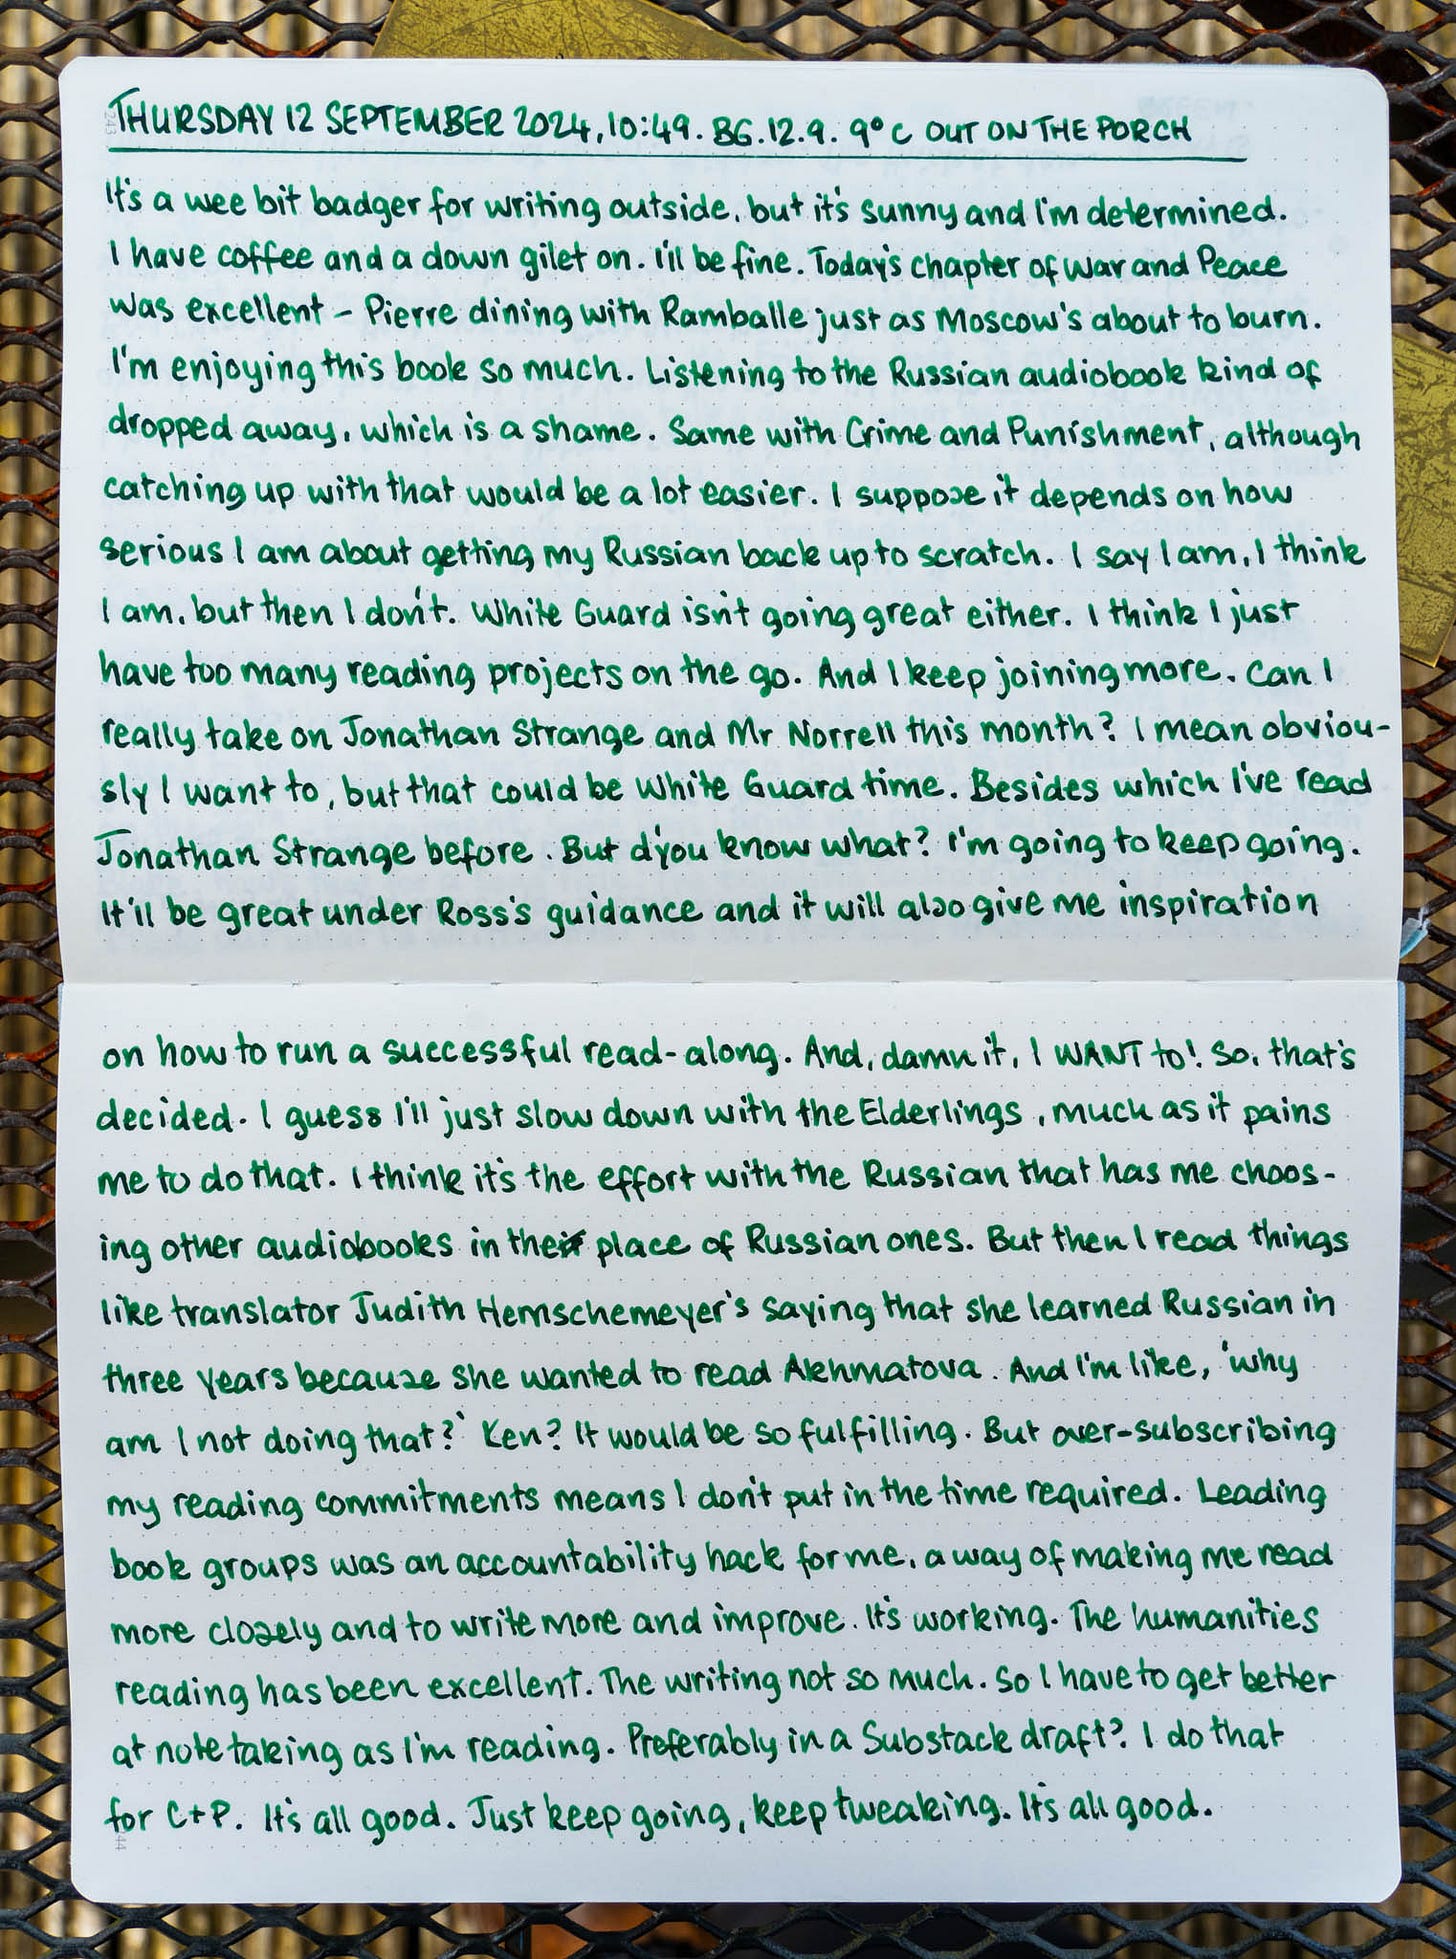 THURSDAY 12 SEPTEMBER 2024, 10:49. BG. 12.9. 9°C OUT ON THE PORCH
It's a wee bit badger for writing outside, but it's sunny and I'm determined.
I have coffee and a down gilet on. I'll be fine. Today's chapter of War and Peace
was excellent – Pierre dining with Ramballe just as Moscow's about to burn.
I'm enjoying this book so much. Listening to the Russian audiobook kind of
dropped away, which is a shame. Same with Crime and Punishment, although
catching up with that would be a lot easier. I suppose it depends on how
serious I am about getting my Russian back up to scratch. I say I am, I think
I am, but then I don't. White Guard isn't going great either. I think I just
have too many reading projects on the go. And I keep joining more. Can I
really take on Jonathan Strange and Mr Norrell this month? I mean obviou-
sly I want to, but that could be White Guard time. Besides which I've read
Jonathan Strange before. But d'you know what? I'm going to keep going.
It'll be great under Ross's guidance and it will also give me inspiration
on how to run a successful read-along. And, damn it, I WANT to! So, that's
decided. I guess I'll just slow down with the Elderlings, much as it pains
me to do that. I think it's the effort with the Russian that has me choos-
ing other audiobooks in the place of Russian ones. But then I read things
like translator Judith Hemschemeyer's saying that she learned Russian in
three years because she wanted to read Akhmatova. And I'm like, 'why
am I not doing that?' Ken? It would be so fulfilling. But over-subscribing
my reading commitments means I don't put in the time required. Leading
book groups was an accountability hack for me, a way of making me read
more closely and to write more and improve. It's working. The humanities
reading has been excellent. The writing not so much. So I have to get better
at note taking as I'm reading. Preferably in a Substack draft? I do that
for C+P. It's all good. Just keep going, keep tweaking. It's all good.